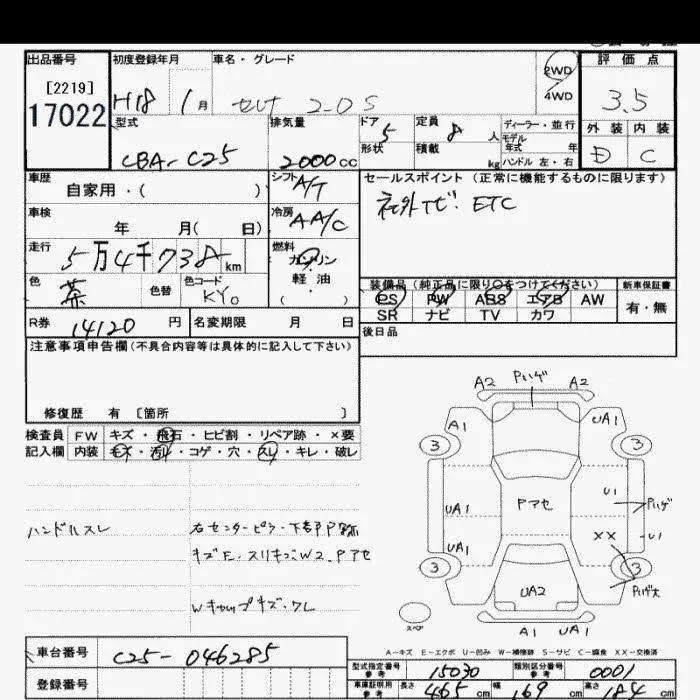 出品番号 初度登録年月 車名・グレード 評価点
[2219]
17022
H18 1月 セレナ 2.0S 2WD 3.5
4WD
型式 排気量 ドア 5 定員 8人 ディーラー・並行 外装 内装
モデル年式 年
CBA-C25 2000cc 形状 積載 kg ハンドル 左・右 D C
車歴 シフト A/T セールスポイント (正常に機能するものに限ります)
自家用・( ) 社外ナビ. ETC
車検 冷房 AA/C
年 月( 日)
走行 5万4千738km 燃料 ガソリン
軽油
( )
色 茶 色替 色コード KY0
装備品 (純正品に限り○をつけてください) 新車保証書
PS PW ABS エアB AW 有・無
SR ナビ TV カワ
R券 14120円 名変期限 月 日 後日品
注意事項申告欄(不具合内容等は具体的に記入して下さい)
修復歴 有 [箇所 ]
検査員 FW キズ・飛石・ヒビ割・リペア跡・×要
記入欄 内装 キズ・汚れ・コゲ・穴・スレ・キレ・破レ
A2 Pハゲ A2
A1 UA1
3 3
UA1 Pマセ U1 Pハゲ
UA1 XX U1
3 3
UA2 Pハゲ大
スペア A1 UA1
ハンドルスレ 右センターピラー下部P跡
キズE.スリキズ.W2.Pアセ
Wキャップキズ.ワレ
A-キズ E-エクボ U-凹み W-補修跡 S-サビ C-腐食 XX-交換済
車台番号 C25-046285
登録番号
型式指定番号 参考 15030 類別区分番号 参考 0001
車庫証明用 参考 長さ 465cm 幅 169cm 高さ 184cm